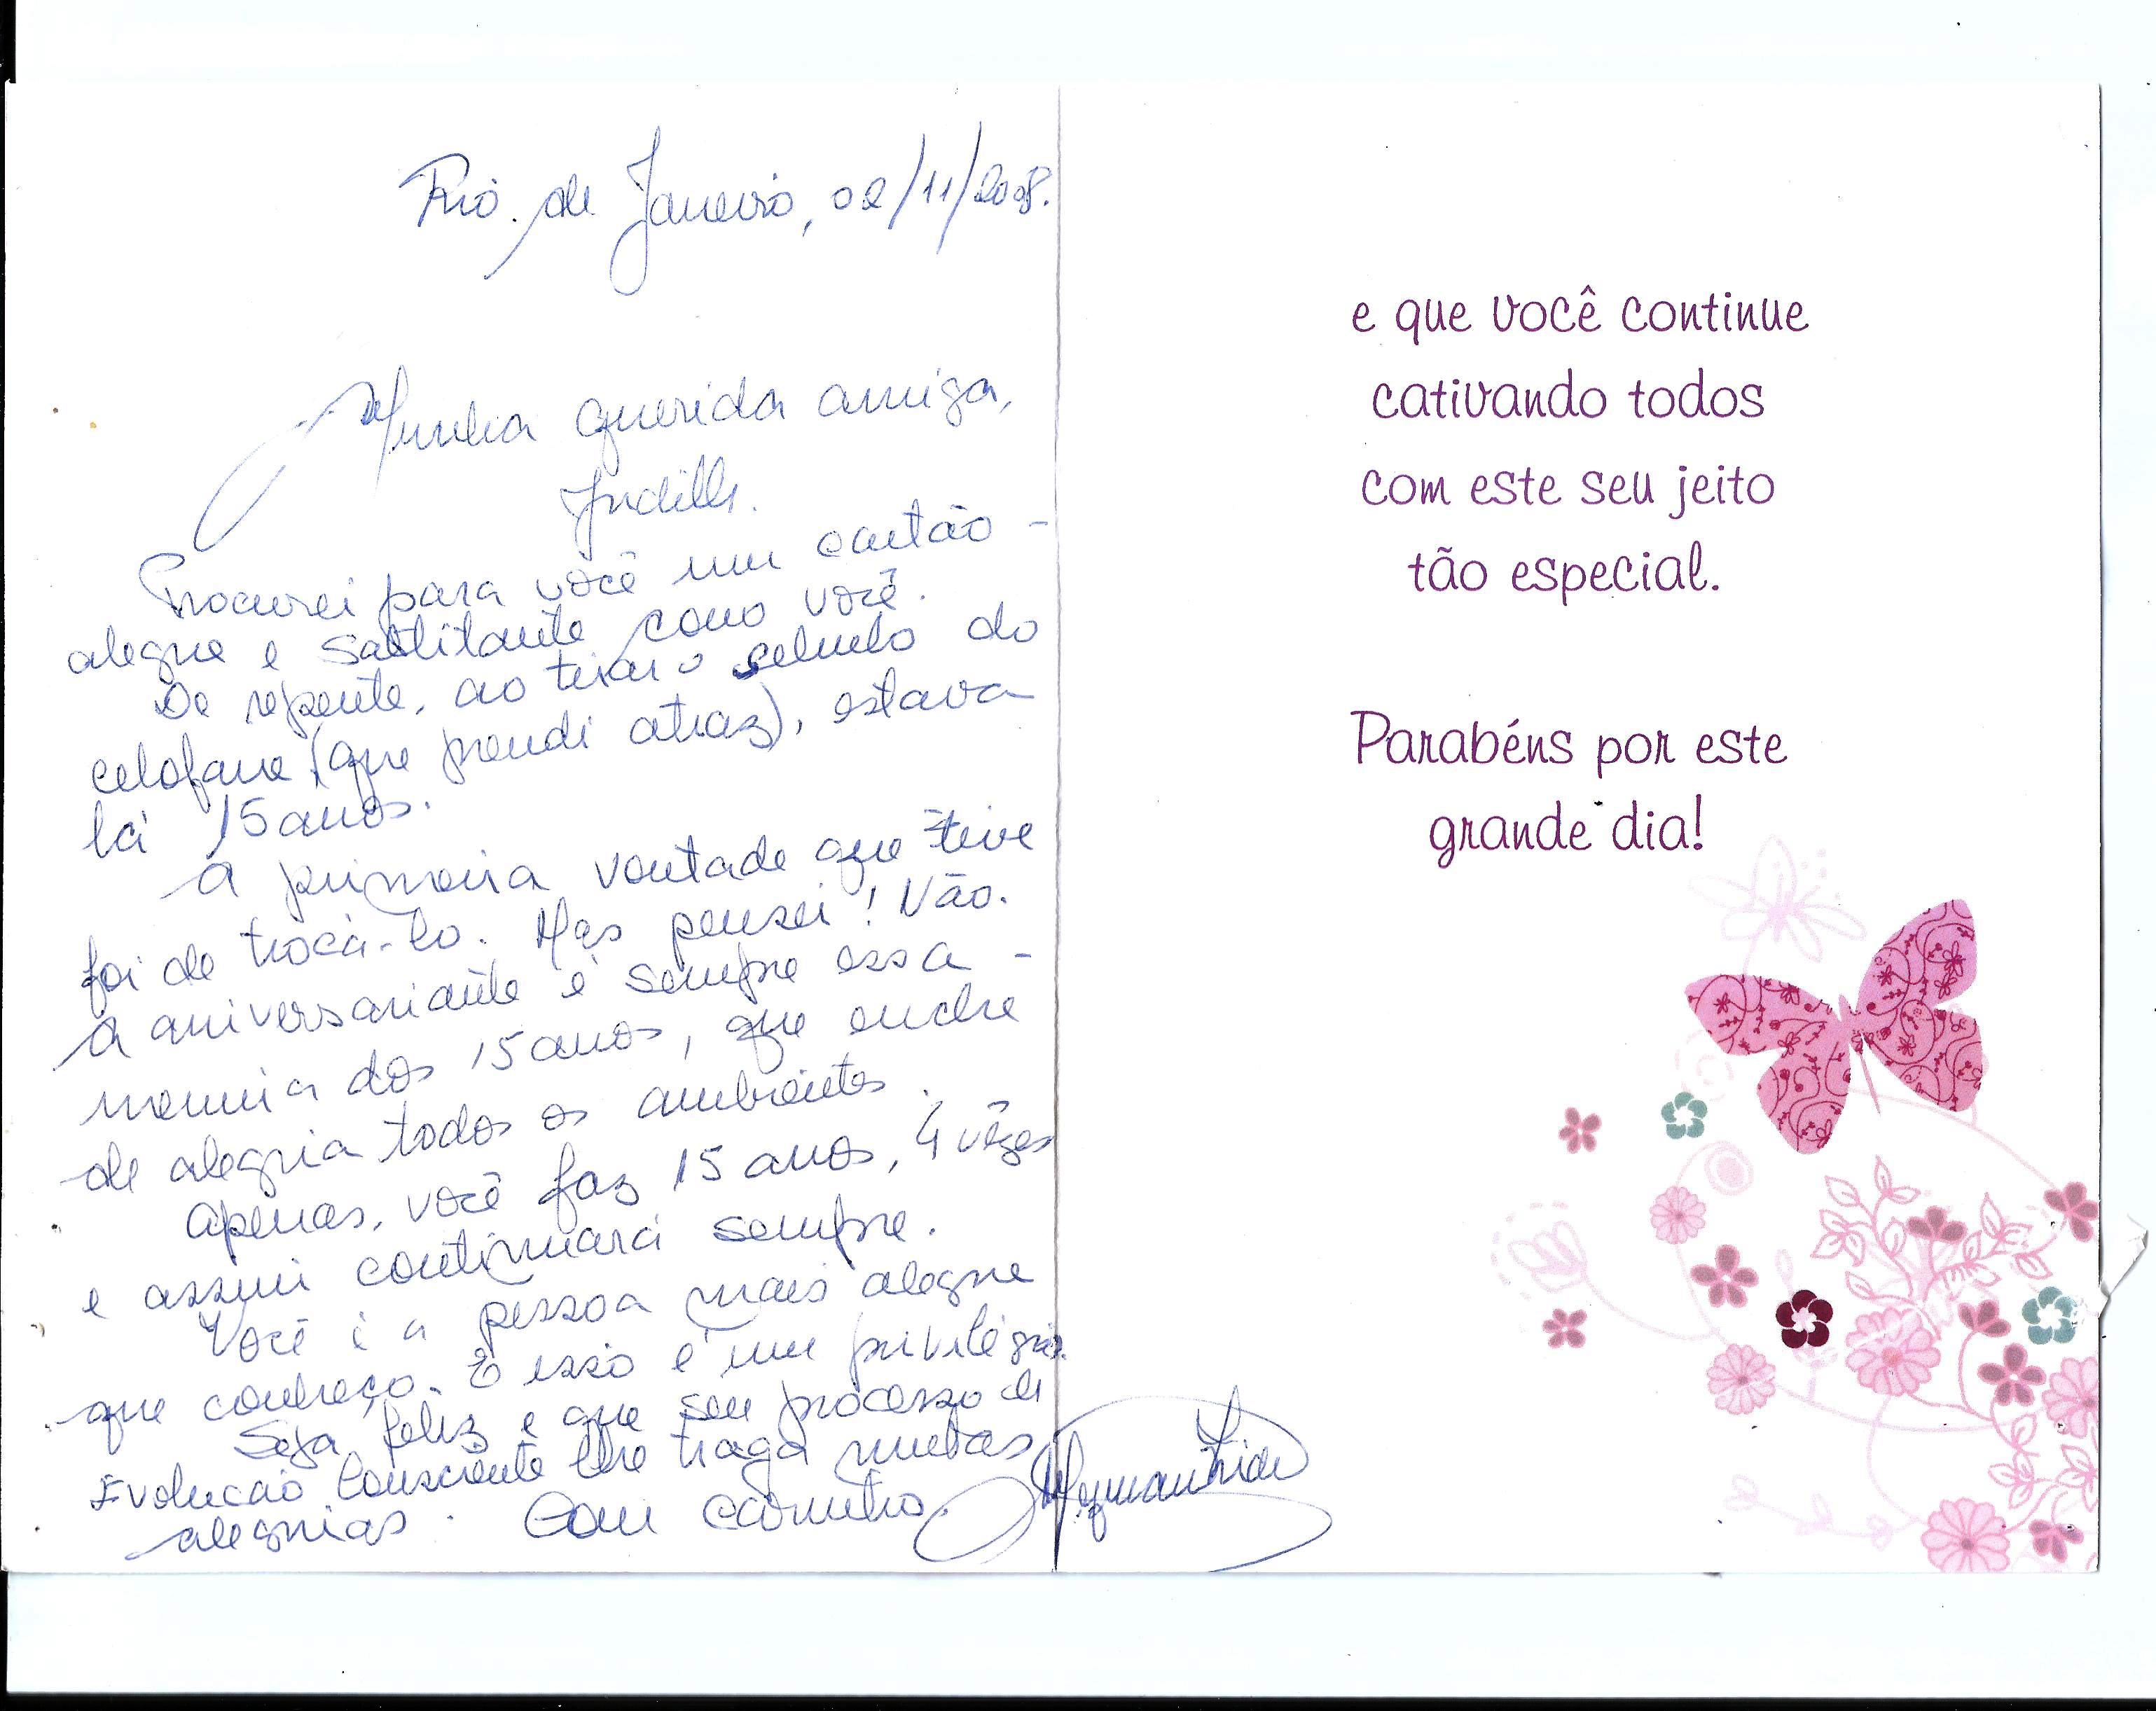 Rio de Janeiro, 02/11/2008.
Minha querida amiga,
Procurei para você um cartão -
alegre e saltitante como você.
De repente, ao tirar o selinho do
celofane (que prendi atraz), estava
lá 15 anos.
A primeira vontade que teive
foi de trocá-lo. Mas pensei! Não.
A aniversariante é sempre essa -
menina dos 15 anos, que enche
de alegria todos os ambientes.
Apenas, você faz 15 anos, 4 vêzes
e assim continuará sempre.
Você é a pessoa mais alegre
que conheço. E isso é um privilégio.
Seja feliz e que seu processo de
Evolucão Consciente lhe traga muitas
alegrias. Com carinho.
e que você continue
cativando todos
com este seu jeito
tão especial.
Parabéns por este
grande dia!